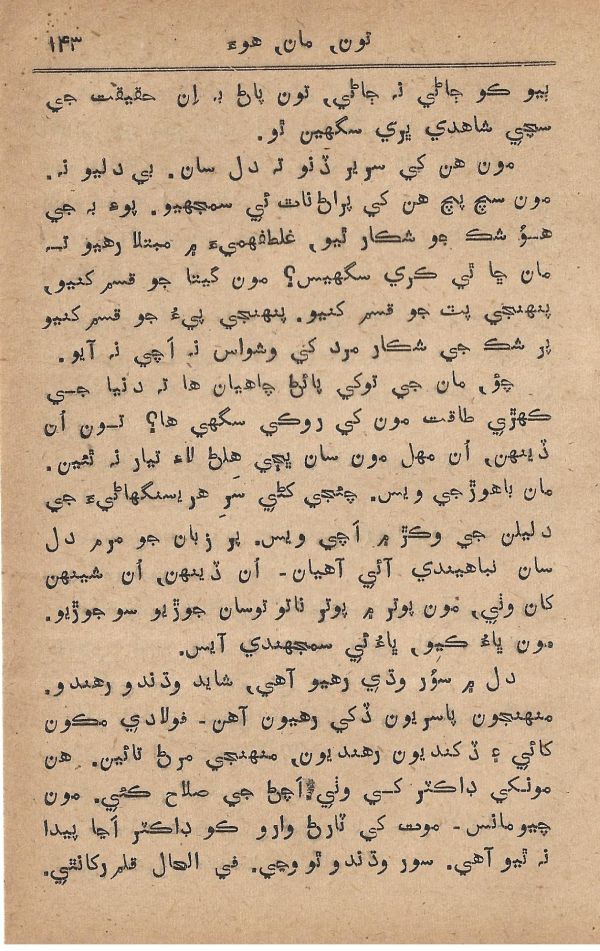 تون, مان, هوءَ ١٤٣
ٻيو ڪو ڄاڻي نہ ڄاڻي, تون پاڻ بہ اِن حقيقت جي
سچي شاهدي ڀري سگهين ٿو.
مون هن کي سرير ڏنو تہ دل سان. بي دليو نہ.
مون سچ پچ هن کي پراڻ ناٿ ئي سمجهيو. پوءِ بہ جي
هـو شڪ جو شڪار ٿيو, غلطفهميءَ ۾ مبتلا رهيو تـہ
مان ڇا ٿي ڪري سگهيس؟ مون گيتا جو قسم کنيو,
پنهنجي پٽ جو قسم کنيو. پنهنجي پيءُ جو قسم کنيو
پر شڪ جي شڪار مرد کي وشواس نہ اَچي نہ آيو.
چؤ, مان جي توکي پائڻ چاهيان ها تہ دنيا جـي
ڪهڙي طاقت مون کي روڪي سگهي ها؟ تـون اُن
ڏينهن, اُن مهل مون سان ڀڄي هلڻ لاءِ تيار نہ ٿئين.
مان باهوڙجي ويس. چئجي کڻي سَرِ هريسنگهاڻيءَ جي
دليلن جي وڪڙ ۾ اَچي ويس. پر زبان جو مرم دل
سان نباهيندي آئي آهيان۔ اُن ڏينهن, اُن شينهن
کان وٺي, مون پوتر ۾ پوتر ناتو توسان جوڙيو سو جوڙيو.
مون ڀاءُ ڪيو, ڀاءُ ئي سمجهندي آيس.
دل ۾ سوُر وڌي رهيو آهي, شايد وڌندو رهندو.
منهنجون پاسريون ڏکي رهيون آهن۔ فولادي مڪون
کائي ۽ ڏکنديون رهنديون, منهنجي مرڻ تائين. هن
مونکي ڊاڪٽر کـي وٺي اَچڻ جي صلاح ڪئي. مون
چيومانس۔ موت کي ٽارڻ وارو ڪو ڊاڪٽر اَڃا پيدا
نہ ٿيو آهي. سور وڌندو ٿو وڃي. في الحال قلم رکانٿي.